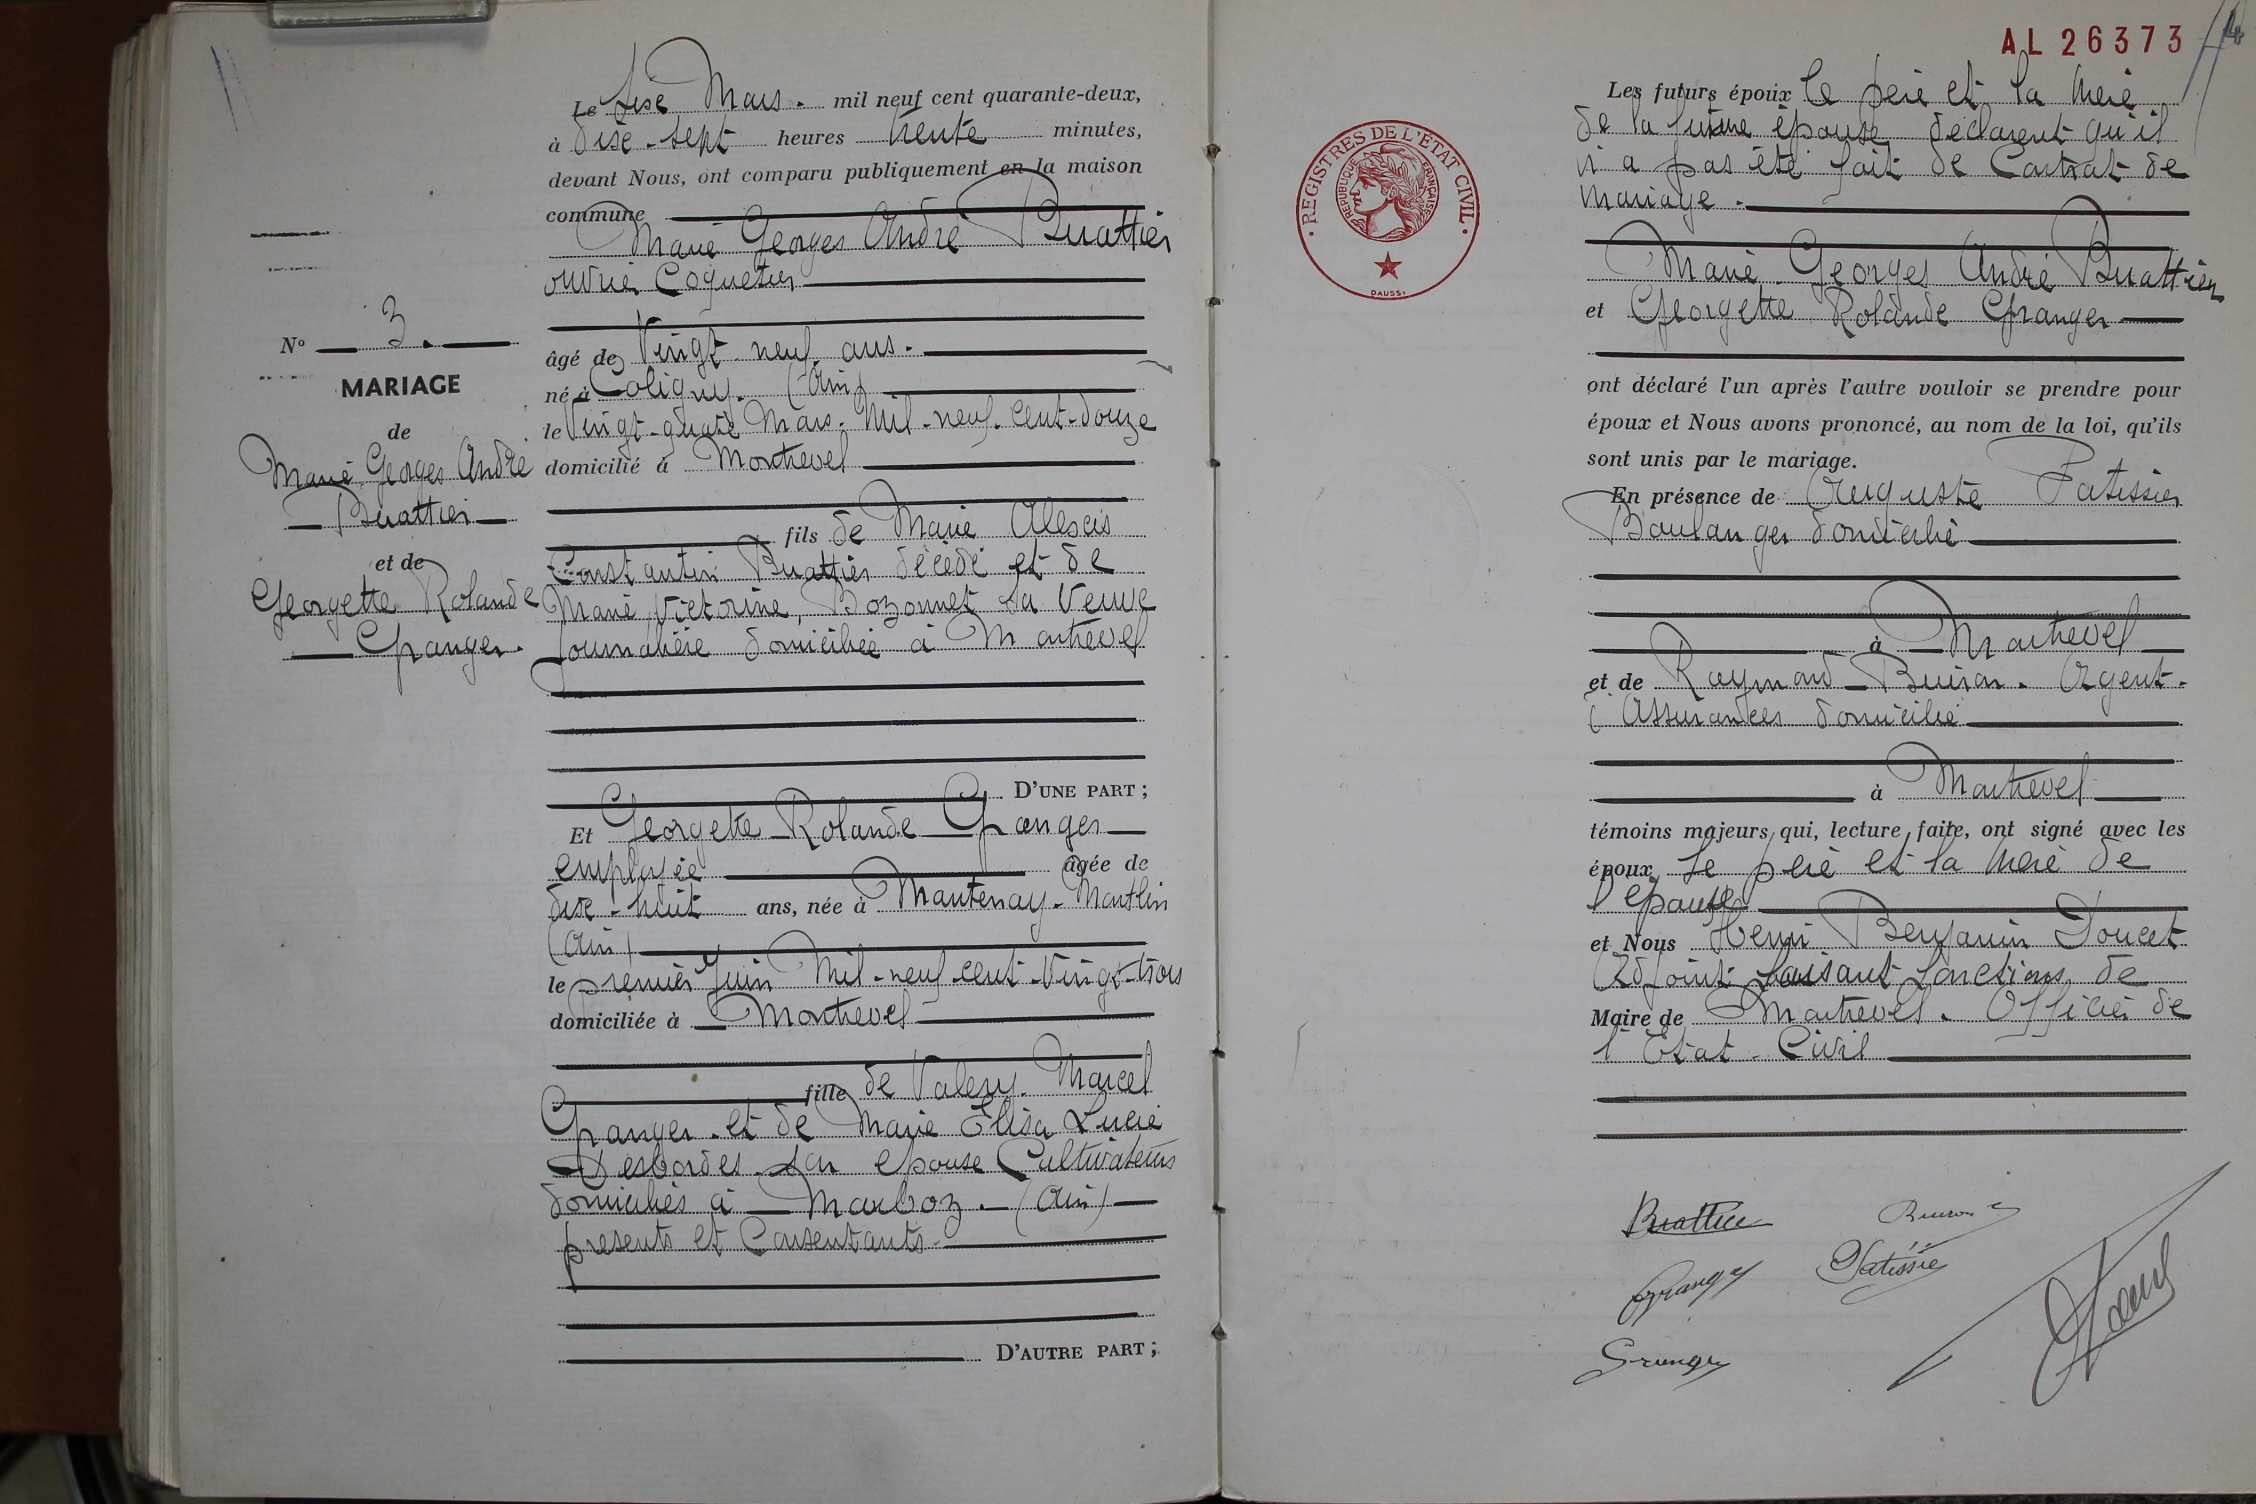 Le six Mars. mil neuf cent quarante-deux,
à dix-sept heures trente minutes,
devant Nous, ont comparu publiquement en la maison
commune
Marie Georges André Buattier
ouvrier Coquetier
âgé de Vingt neuf ans.
né à Coligny. (Ain)
le Vingt-quatre Mars. Mil-neuf-cent-douze
domicilié à Montrevel
fils de Marie Alexis
Constantin Buattier décédé et de
Marie Victorine, Bozonnet sa Veuve
Journalière domiciliée à Montrevel
D'UNE PART ;
Et Georgette Rolande Granger
employée âgée de
dix-huit ans, née à Mantenay-Montlin
(Ain)
le premier Juin Mil-neuf cent-Vingt-trois
domiciliée à Montrevel
fille de Valery. Marcel
Granger. et de Marie Elisa Lucie
Desbordes son épouse Cultivateurs
domiciliés à Marboz. (Ain)
présents et Consentants.
D'AUTRE PART ;
No 3.
MARIAGE
de
Marie Georges André
Buattier
et de
Georgette Rolande
Granger.
AL 26373
REGISTRES DE L'ÉTAT CIVIL
RÉPUBLIQUE FRANÇAISE
DAUSSY
Les futurs époux le père et la Mère
de la future épouse déclarent qu'il
n'a pas été fait de Contrat de
Mariage.
Marie Georges André Buattier
et Georgette Rolande Granger
ont déclaré l'un après l'autre vouloir se prendre pour
époux et Nous avons prononcé, au nom de la loi, qu'ils
sont unis par le mariage.
En présence de Auguste Patissier
Boulanger domicilié
à Montrevel
et de Raymond Buiron. Agent.
d'Assurances domicilié
à Montrevel
témoins majeurs, qui, lecture faite, ont signé avec les
époux, le père et la Mère de
l'épouse
et Nous Henri Benjamin Doucet
Adjoint faisant fonctions de
Maire de Montrevel. Officier de
l'Etat-Civil
Buattier
Buiron
Granger
Patissier
Granger